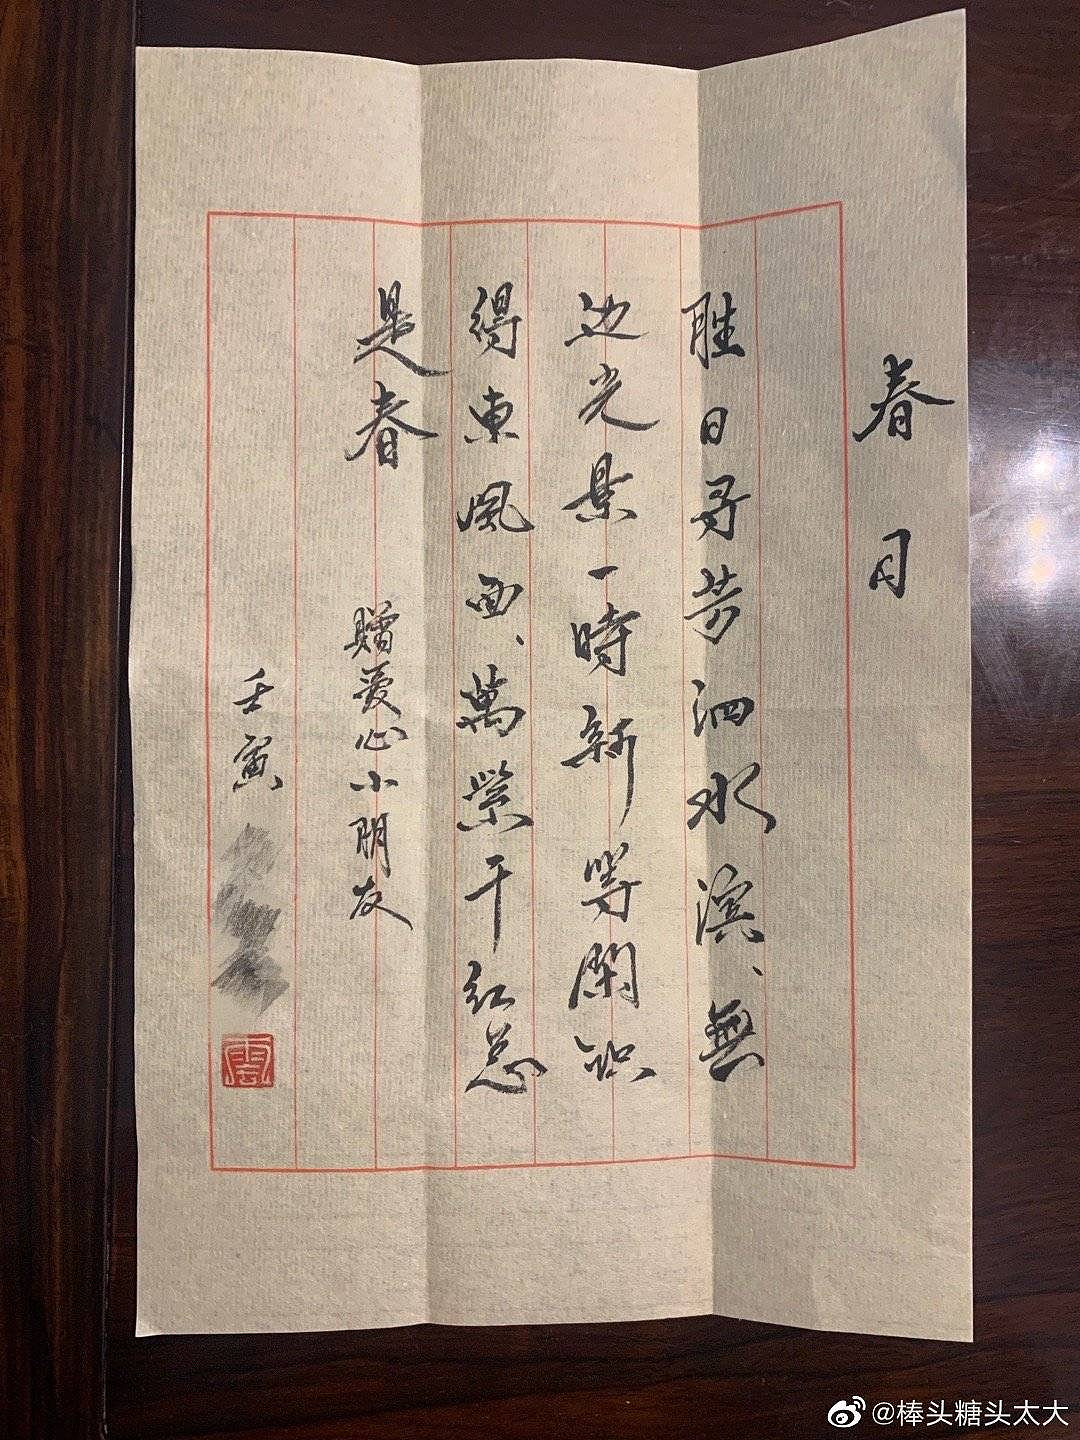 春日
胜日寻芳泗水滨、無
边光景一時新等閑识
得東風面、萬紫千红总
是春
赠爱心小朋友
壬寅
雲
@棒头糖头太大